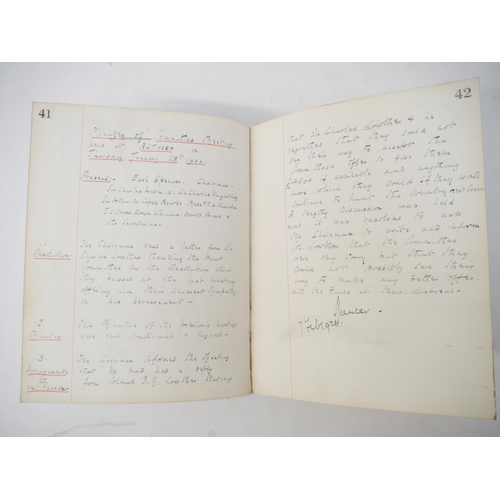 41
Minutes of Committee Meeting
held at on
Thursday January 28th 1926.
Present - Earl Spencer - Chairman -
Sir Charles
the Secretary -
-1-
Resolution
The Chairman read a letter from Sir
Charles Lowther thanking the Hunt
Committee for the Resolution which
they passed at the last meeting
offering him their sincerest sympathy
in his bereavement -
-2-
Minutes -
The Minutes of the previous meeting
were read confirmed & signed -
-3-
Arrangements
for
next Season -
The Chairman informed the Meeting
that he had had a reply
from Colonel J. G. Lowther stating
42
that Sir Charles Lowther & he
regretted that they could not
see their way to accept the
Committee's offer to give them
available and anything
more which they could if they would
continue to hunt the Country next Season
A lengthy discussion was held
and it was resolved to ask
the Chairman to write and inform
Lowther that the Committee
were very sorry but that they
could not possibly see their
way to make any better offer
with the funds at their disposal -
Spencer -
7 Feb 1926 -